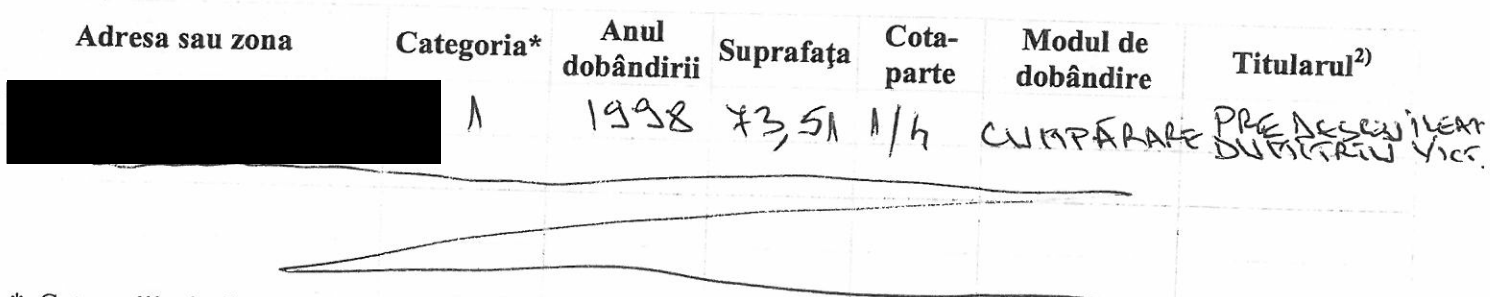 Adresa sau zona Categoria* Anul dobândirii Suprafaţa Cota-parte Modul de dobândire Titularul²⁾
1 1998 73,51 1/4 CUMPĂRARE
DUMITRIU VICT.